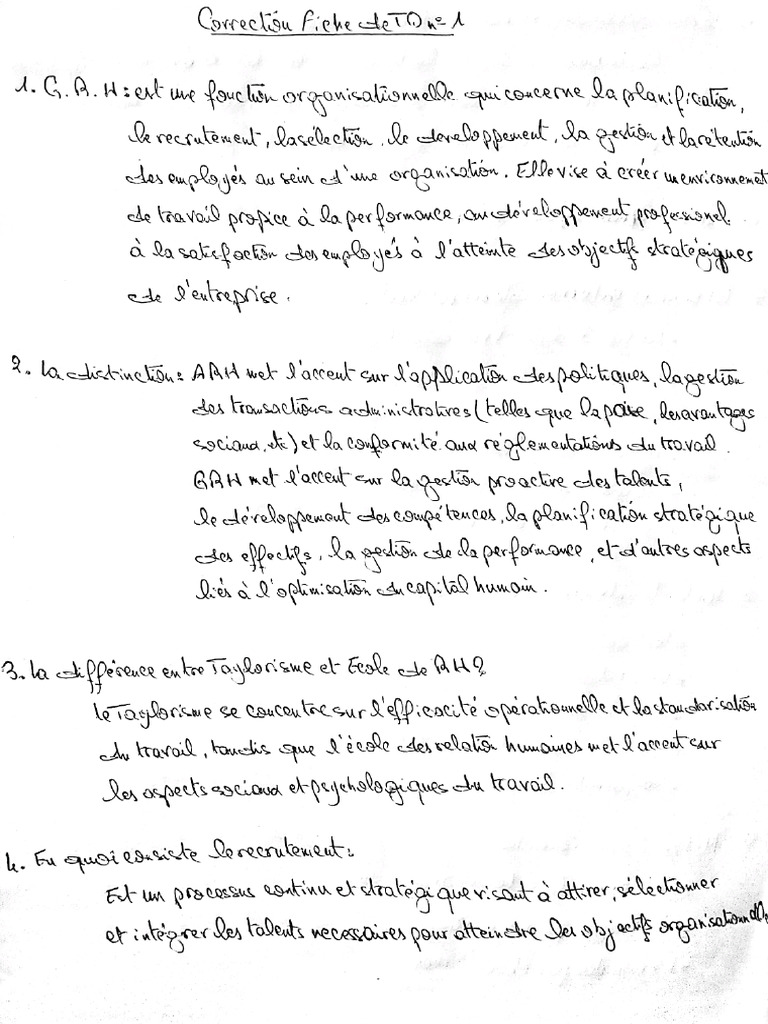 Correction Fiche de TD n° 1
1. G.R.H : est une fonction organisationnelle qui concerne la planification,
le recrutement, la sélection, le développement, la gestion et la rétention
des employés au sein d'une organisation. Elle vise à créer un environnement
de travail propice à la performance, au développement professionel
à la satisfaction des employés à l'atteinte des objectifs stratégiques
de l'entreprise.
2. La distinction : ARH met l'accent sur l'application des politiques, la gestion
des transactions administratives (telles que la paie, les avantages
sociaux, etc) et la conformité aux réglementations du travail.
GRH met l'accent sur la gestion proactive des talents,
le développement des compétences, la planification stratégique
des effectifs, la gestion de la performance, et d'autres aspects
liés à l'optimisation du capital humain.
3. La différence entre Taylorisme et Ecole de RH ?
le Taylorisme se concentre sur l'efficacité opérationnelle et la standarisation
du travail, tandis que l'école des relation humaines met l'accent sur
les aspects sociaux et psychologiques du travail.
4. En quoi consiste le recrutement :
Est un processus continu et stratégique visant à attirer, sélectionner
et intégrer les talents necessaires pour atteindre les objectifs organisationnels